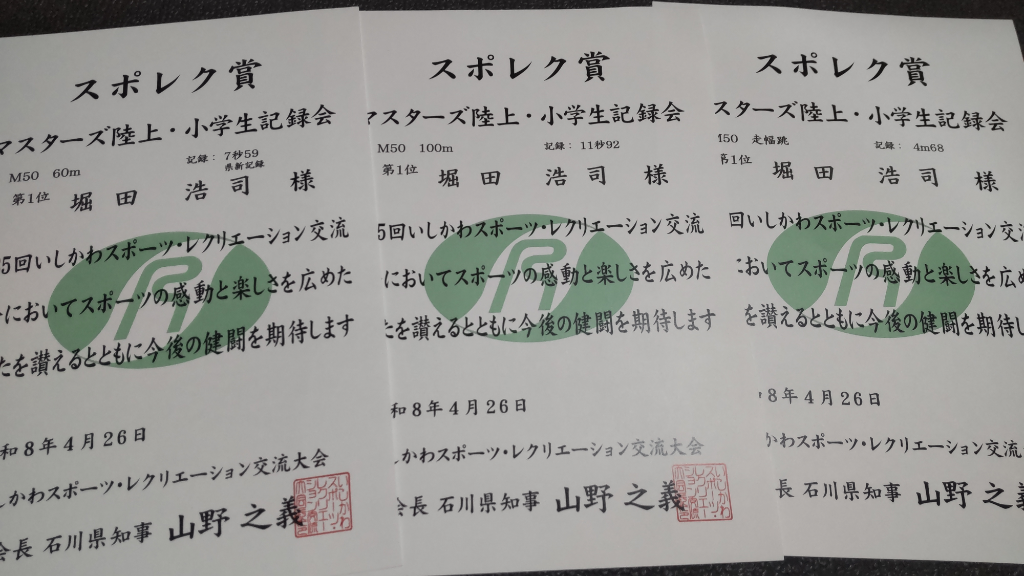 スポレク賞
マスターズ陸上・小学生記録会
M50 60m
記録： 7秒59
県新記録
第1位 堀田 浩司 様
5回いしかわスポーツ・レクリエーション交流
においてスポーツの感動と楽しさを広めた
たを讃えるとともに今後の健闘を期待します
和8年4月26日
しかわスポーツ・レクリエーション交流大会
会長 石川県知事 山野 之義
スポレク賞
マスターズ陸上・小学生記録会
M50 100m
記録： 11秒92
第1位 堀田 浩司 様
5回いしかわスポーツ・レクリエーション交流
においてスポーツの感動と楽しさを広めた
たを讃えるとともに今後の健闘を期待します
和8年4月26日
しかわスポーツ・レクリエーション交流大会
会長 石川県知事 山野 之義
スポレク賞
スターズ陸上・小学生記録会
M50 走幅跳
記録： 4m68
第1位 堀田 浩司 様
回いしかわスポーツ・レクリエーション交
においてスポーツの感動と楽しさを広め
を讃えるとともに今後の健闘を期待し
8年4月26日
かわスポーツ・レクリエーション交流
長 石川県知事 山野 之